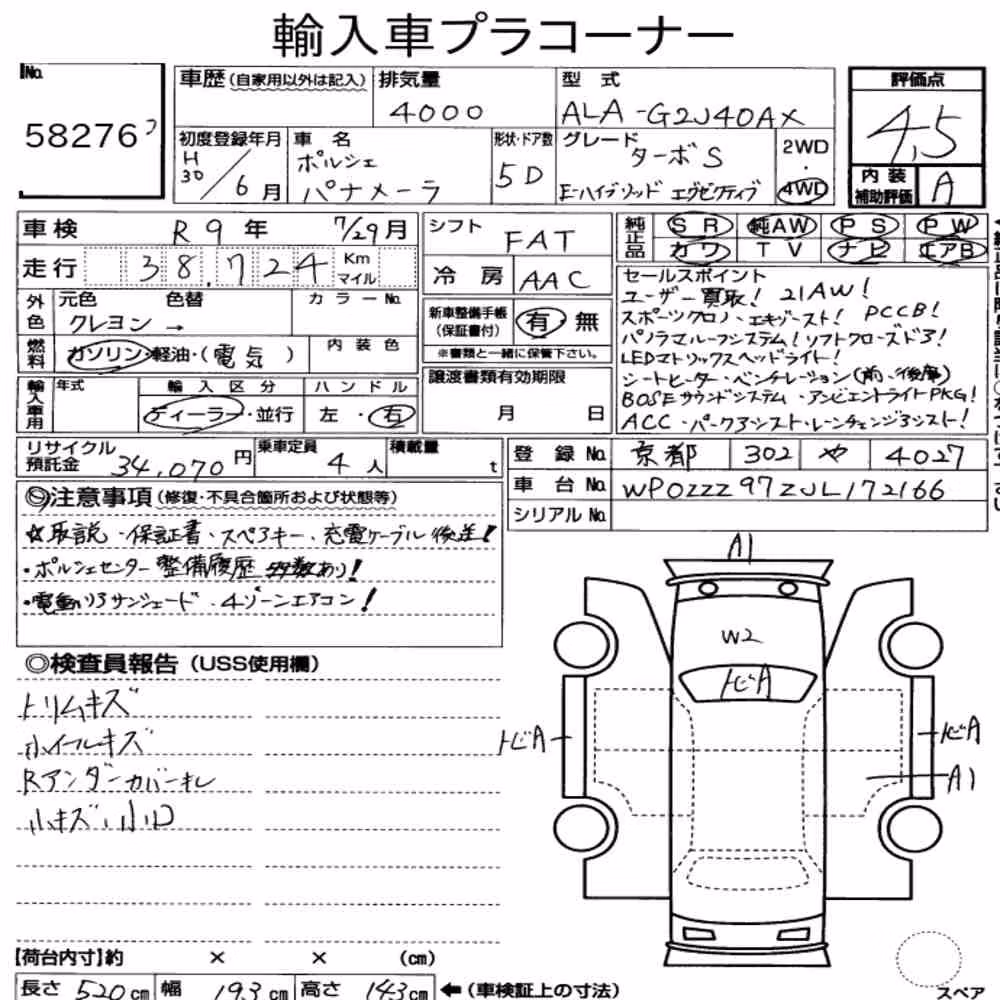 輸入車プラコーナー
No. 58276
車歴(自家用以外は記入) 排気量 4000
型式 ALA-G2J40AX
評価点 4.5
内装補助評価 A
初度登録年月 H30/6月
車名 ポルシェ パナメーラ
形状・ドア数 5D
グレード ターボS
E-ハイブリッド エグゼクティブ
2WD・4WD
車検 R9年 7/29月
走行 38,724 Km マイル
シフト FAT
冷房 AAC
純正品 SR 純AW PS PW
カワ TV ナビ エアB
外色 元色 クレヨン → 色替 カラーNo.
燃料 ガソリン・軽油・(電気) 内装色
新車整備手帳(保証書付) 有・無
※書類と一緒に保管下さい。
輸入車用 年式 輸入区分 ディーラー・並行 ハンドル 左・右
譲渡書類有効期限 月 日
セールスポイント
ユーザー買取! 21AW!
スポーツクロノ・エキゾースト! PCCB!
パノラマルーフシステム!ソフトクローズドア!
LEDマトリックスヘッドライト!
シートヒーター・ベンチレーション(前・後席)
BOSEサウンドシステム・アンビエントライトPKG!
ACC・パークアシスト・レーンチェンジアシスト!
リサイクル預託金 34,070円
乗車定員 4人
積載量 t
登録No. 京都 302 や 4027
車台No. WP0ZZZ97ZJL172166
シリアルNo.
◎注意事項(修復・不具合箇所および状態等)
☆取説・保証書・スペアキー、充電ケーブル後送!
・ポルシェセンター整備履歴多数あり!
・電動リアサンシェード・4ゾーンエアコン!
◎検査員報告(USS使用欄)
トリムキズ
ホイールキズ
Rアンダーカバーキレ
小キズ小凹
A1
W2
トビA
トビA
トビA
A1
【荷台内寸】約 × × (cm)
長さ 520cm 幅 193cm 高さ 143cm ←(車検証上の寸法)
スペア